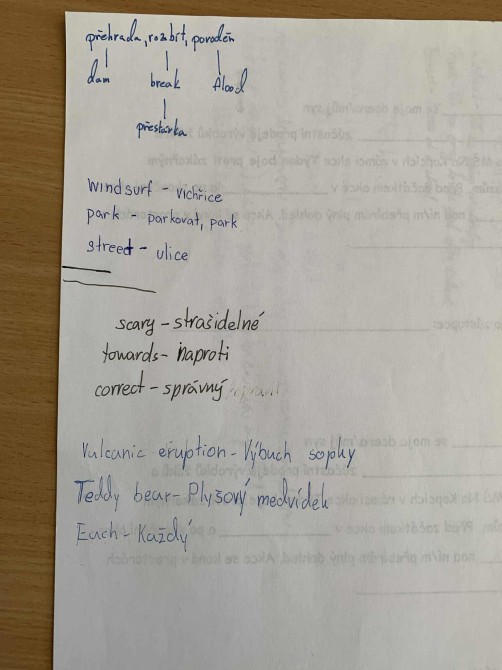 přehrada, rozbít, povodeň
dam break flood
přestávka
windsurf - vichřice
park - parkovat, park
street - ulice
scary - strašidelné
towards - naproti
correct - správný
Vulcanic eruption - Výbuch sopky
Teddy bear - Plyšový medvídek
Each - Každý